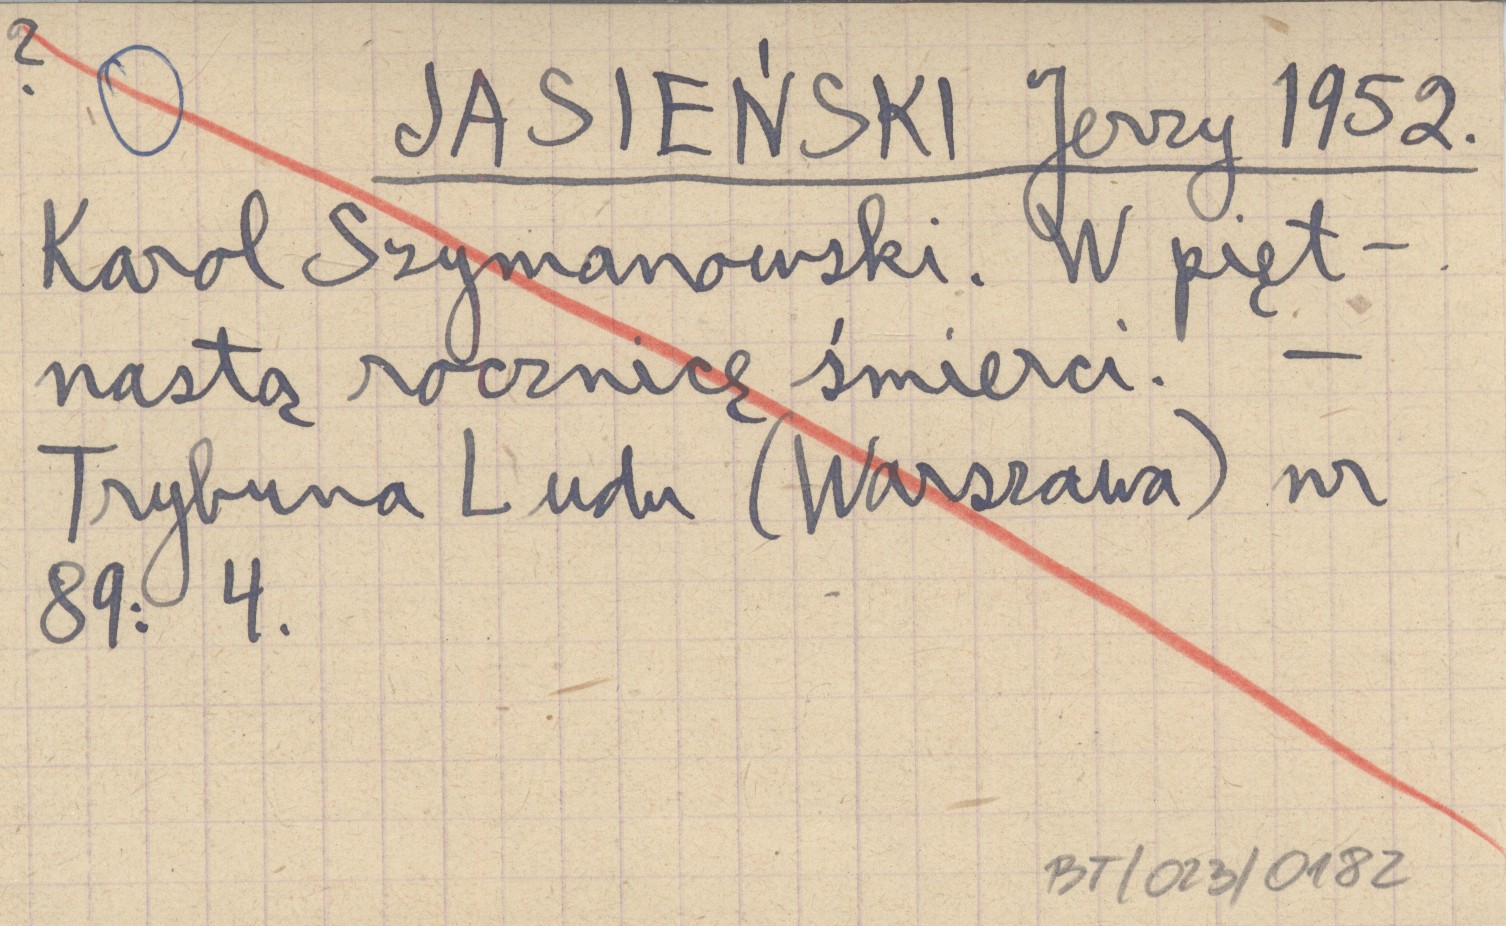 ?
JASIEŃSKI Jerzy 1952.
Karol Szymanowski. W pięt-
nastą rocznicę śmierci. —
Trybuna Ludu (Warszawa) nr
89: 4.
BT/023/0182